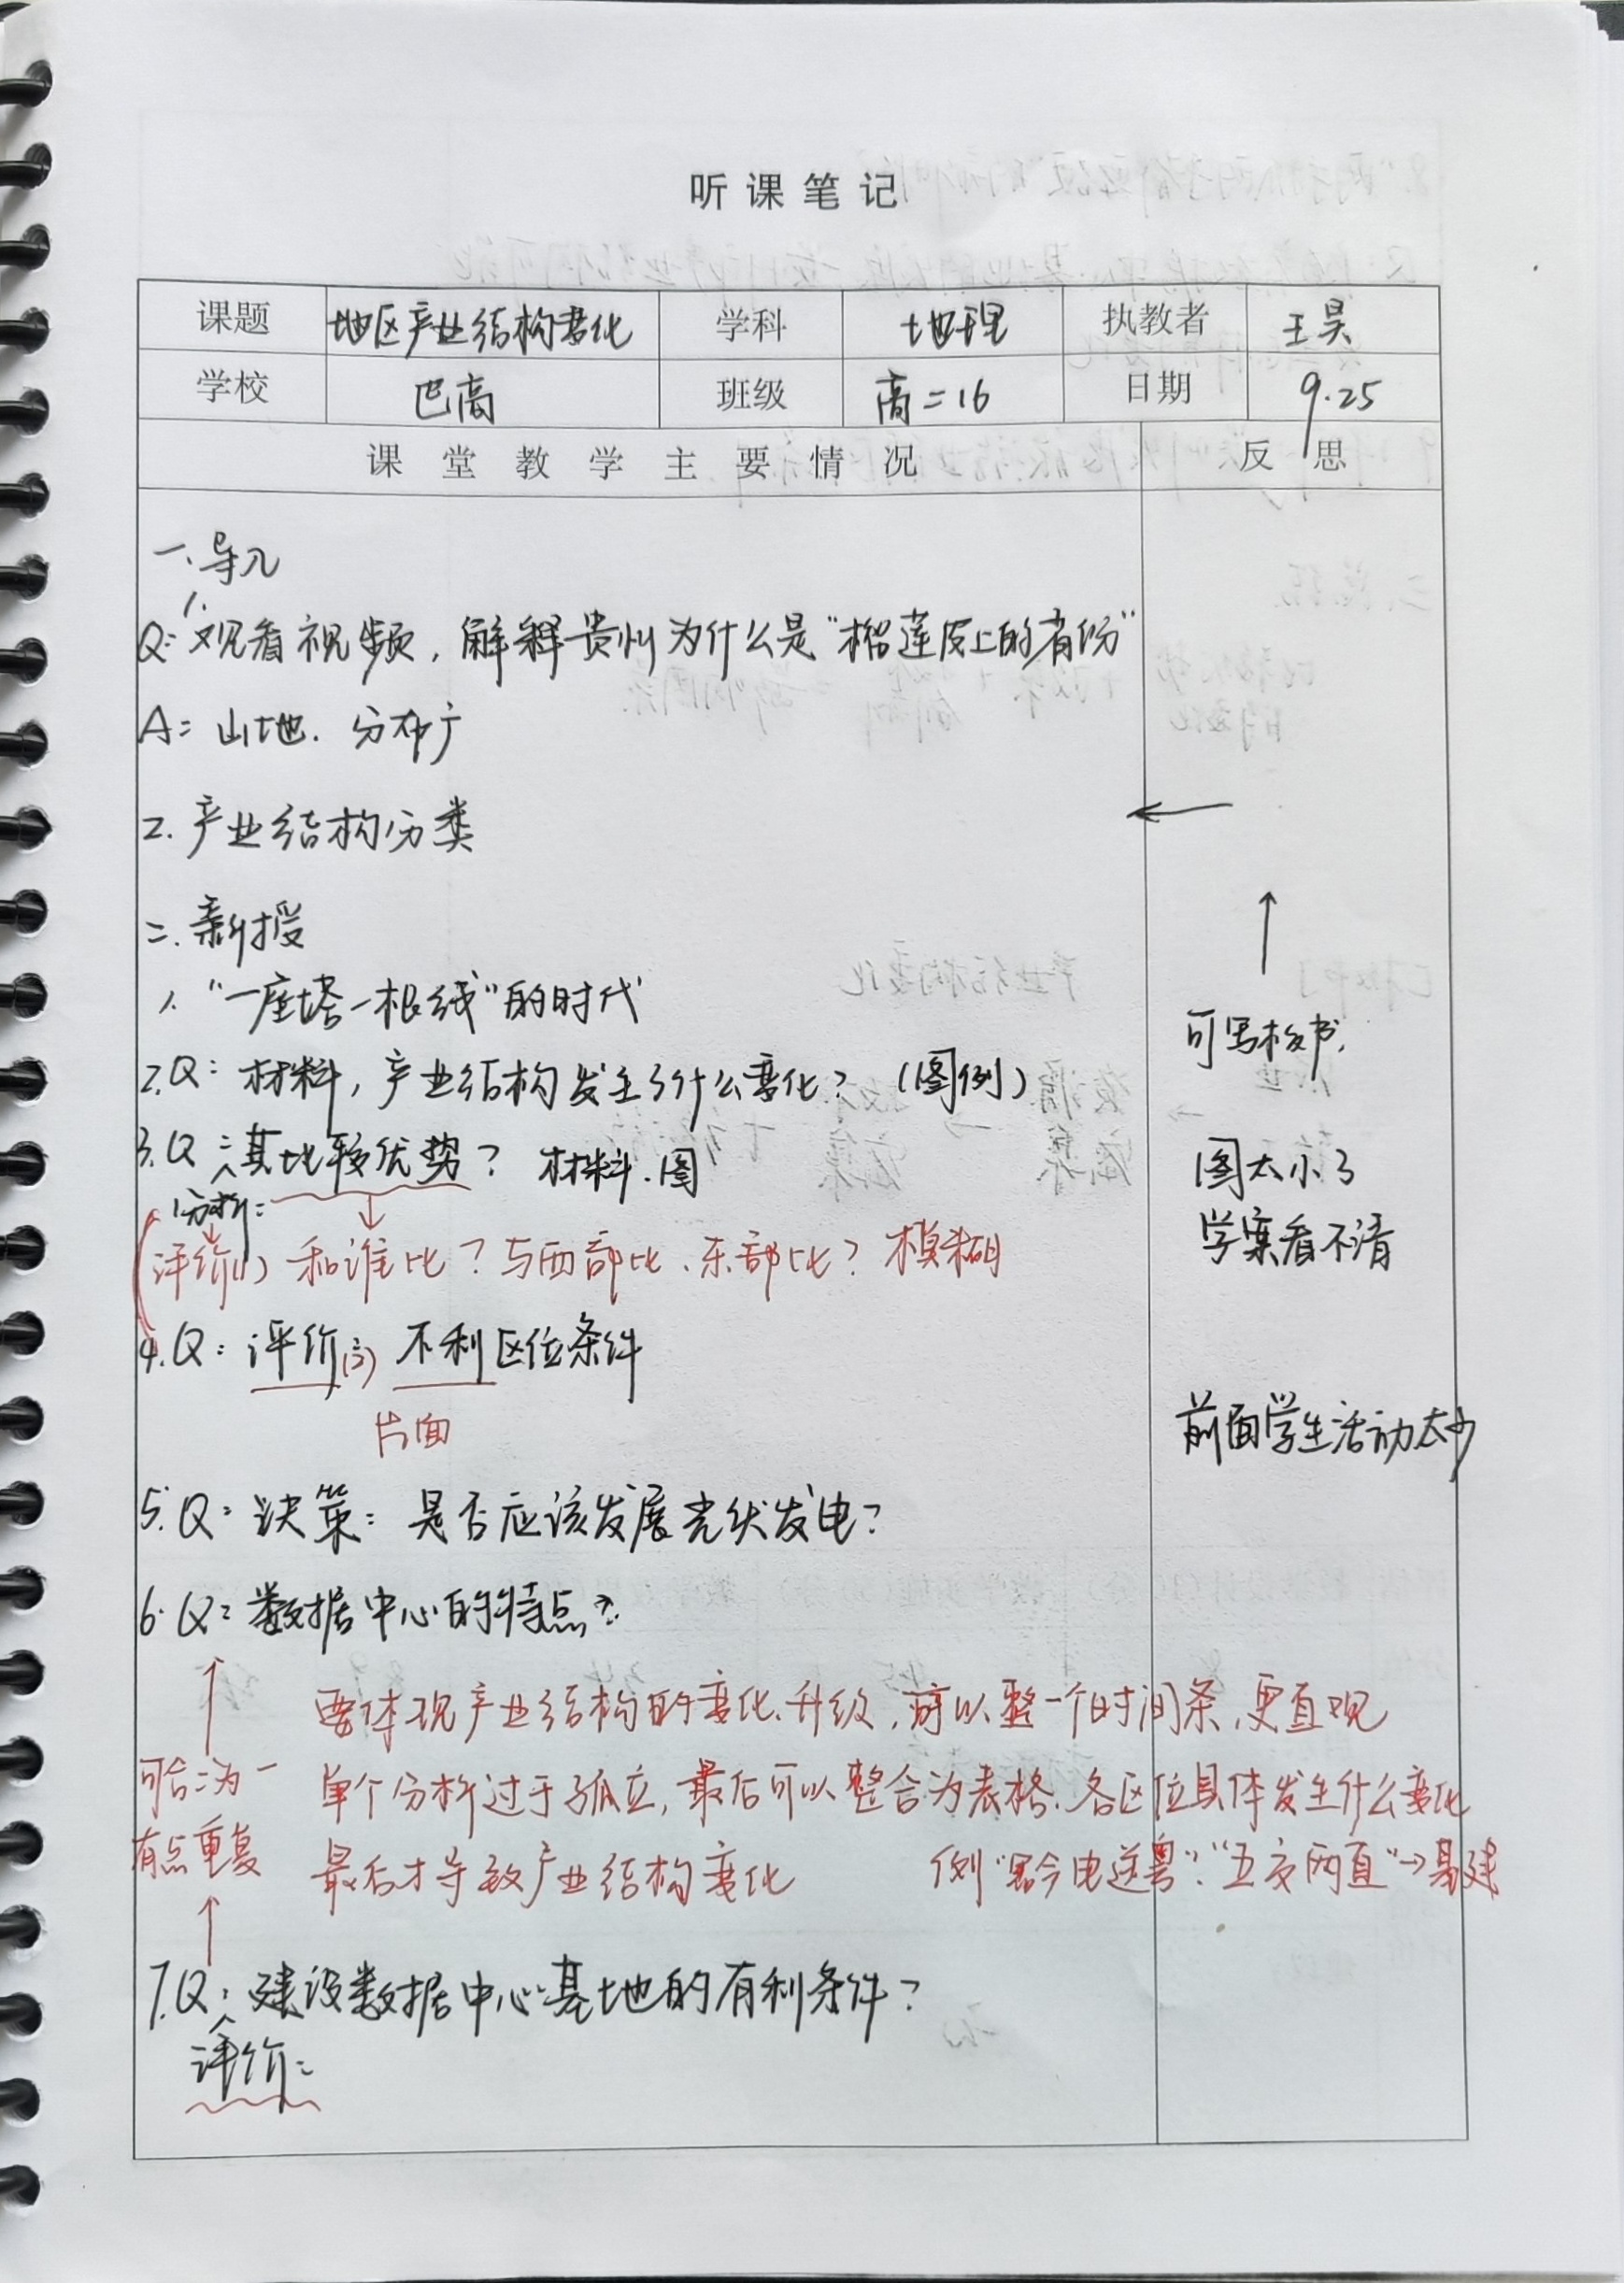 听课笔记
课题 地区产业结构变化 学科 地理 执教者 王昊
学校 巴高 班级 高二16 日期 9.25
课堂教学主要情况 反思
一.导入
1.
Q:观看视频,解释贵州为什么是"榴莲皮上的省份"
A:山地.分布广
2.产业结构分类
二.新授
1."一座塔一根线"的时代
可写板书,
2.Q:材料,产业结构发生了什么变化?(图例)
3.Q:其比较优势?材料.图
图太小了
分析:
学案看不清
评价(1) 和谁比?与西部比、东部比?模糊
4.Q:评价(3) 不利区位条件
片面
前面学生活动太少
5.Q:决策:是否应该发展光伏发电?
6.Q:数据中心的特点?
要体现产业结构的变化、升级,可以整一个时间条,更直观
可合二为一
单个分析过于孤立,最后可以整合为表格.各区位具体发生什么变化
有点重复
最后才导致产业结构变化 例"黔电送粤"."五交两直"→基建
7.Q:建设数据中心基地的有利条件?
评价: